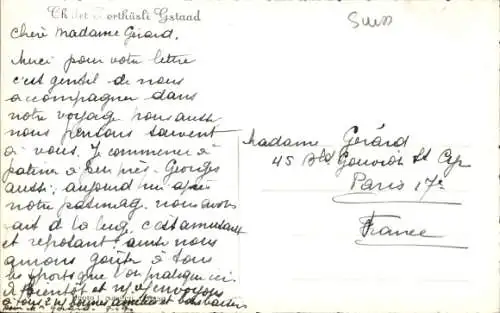 Chalet Gstaad
Suiss
Chère Madame Gérard.
Merci pour votre lettre
c'est gentil de nous
accompagner dans
notre voyage nous aussi
nous pensons souvent
à vous. Je commence à
patiner à peu près. Georges
aussi; aujourd'hui après
notre patinage nous avons
fait de la luge, c'est amusant
et reposant ainsi nous
aurons goûté à tous
les sports que l'on pratique ici.
A bientôt et
à tous 2 bonnes amitiés et bons baisers
Madame Gérard
45 Bld Gouvion St Cyr
Paris 17e
France